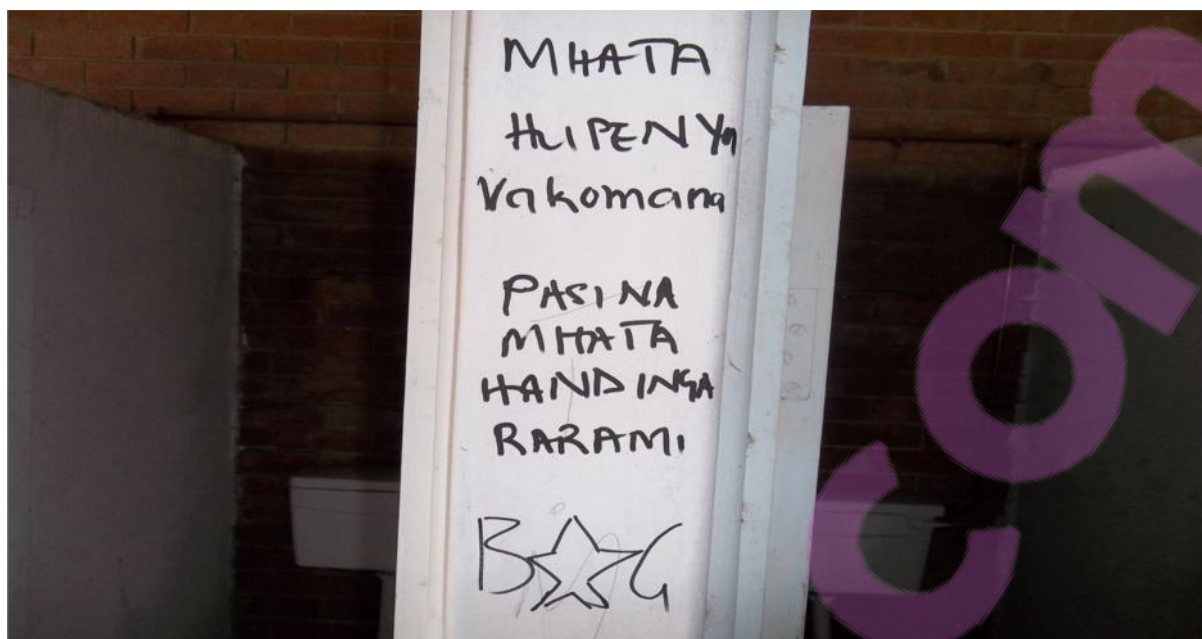 MHATA
HUPENYa
Vakomana
PASINA
MHATA
HANDINGA
RARAMI
B☆G
com